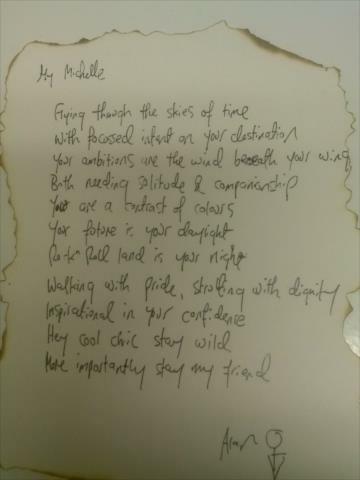 My Michelle
Flying though the skies of time
With focossed intent on your destination
Your ambitions are the wind beneath your wing
Both needing solitude & companionship
You are a contrast of colours
Your future is your daylight
Rock n Roll land is your night
Walking with pride, strolling with dignity
Inspirational in your confidence
Hey cool chic stay wild
More importantly stay my friend